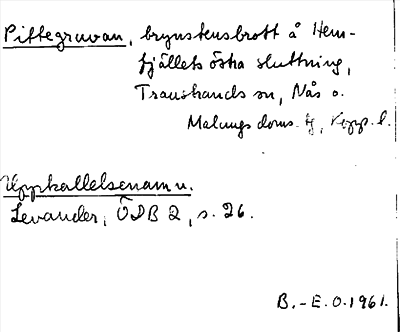 Pittegruvan, brynstensbrott å Hem-
fjällets östra sluttning,
Transtrands sn, Nås o.
Malungs doms. tj, Kopp. l.
Uppkallelsenamn.
Levander, ÖDB 2, s. 26.
B.-E. O. 1961.